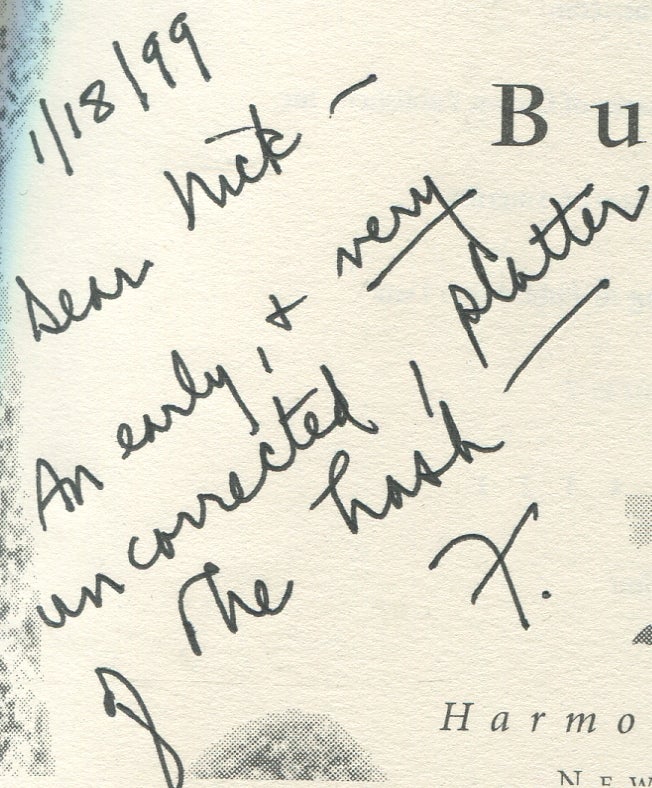 1/18/99
Dear Nick —
An early, + very
uncorrected, platter
of the hash —
X.
Bu
Harmo
NEW